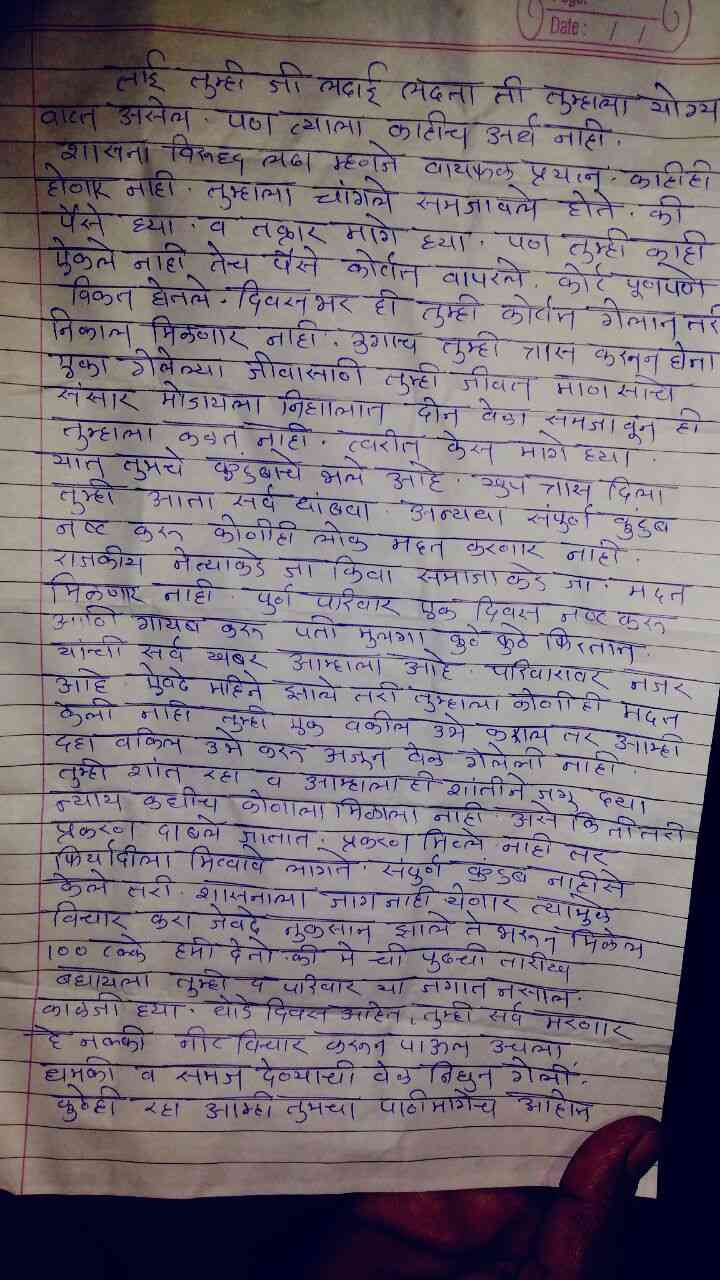 Date: / /
ताई तुम्ही जी लढाई लढता ती तुम्हाला योग्य
वाटत असेल. पण त्याला काहीच अर्थ नाही.
शासना विरूध्द लढा म्हणजे वायफळ प्रयत्न. काहीही
होणार नाही. तुम्हाला चांगले समजावले होते. की
पैसे घ्या. व तक्रार मागे घ्या. पण तुम्ही काही
ऐकले नाही तेच पैसे कोर्टात वापरले. कोर्ट पूर्णपणे
विकत घेतले. दिवसभर ही तुम्ही कोर्टात गेलात तरी
निकाल मिळणार नाही. उगाच तुम्ही त्रास करून घेता
एका गेलेल्या जीवासाठी तुम्ही जीवंत माणसांचे
संसार मोडायला निघालात दोन वेळा समजावून ही
तुम्हाला कळत नाही. त्वरीत केस मागे घ्या.
यात तुमचे कुटुंबाचे भले आहे. खुप त्रास दिला
तुम्ही आता सर्व थांबवा. अन्यथा संपुर्ण कुटुंब
नष्ट करू कोणीही लोक मदत करणार नाही.
राजकीय नेत्याकडे जा किंवा समाजाकडे जा. मदत
मिळणार नाही. पुर्ण परिवार एक दिवस नष्ट करू
आणि गायब करू पती मुलगा कुठे कुठे फिरतात.
यांची सर्व खबर आम्हाला आहे. परिवारावर नजर
आहे. एवढे महिने झाले तरी तुम्हाला कोणीही मदत
केली नाही तुम्ही एक वकील उभे कराल तर आम्ही
दहा वकिल उभे करू अजून वेळ गेलेली नाही.
तुम्ही शांत रहा व आम्हाला ही शांतीने जगू द्या
न्याय कधीच कोणाला मिळाला नाही. असे कितीतरी
प्रकरण दाबले जातात. प्रकरण मिटले नाही तर
फिर्यादीला मिटवावे लागते. संपुर्ण कुटुंब नाहीसे
केले तरी. शासनाला जाग नाही येणार त्यामुळे
विचार करा जेवढे नुकसान झाले ते भरून मिळेल
100 टक्के हमी देतो. की मे ची पुढची तारीख
बघायला तुम्ही व परिवार या जगात नसाल.
काळजी घ्या. थोडे दिवस आहेत, तुम्ही सर्व मरणार
हे नक्की नीट विचार करून पाऊल उचला,
धमकी व समज देण्याची वेळ निघुन गेली.
कुठेही रहा आम्ही तुमचा पाठीमागेच आहोत